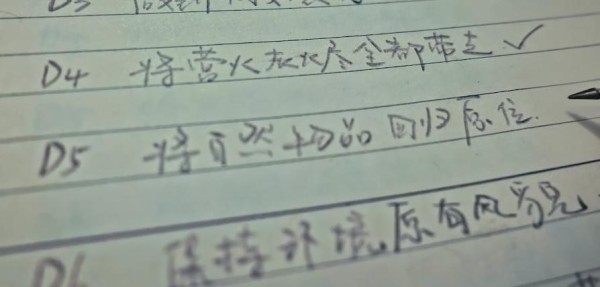 D3
D4 将营火灰烬全部带走 ✓
D5 将自然物品回归原位.
D6 保持环境原有风貌